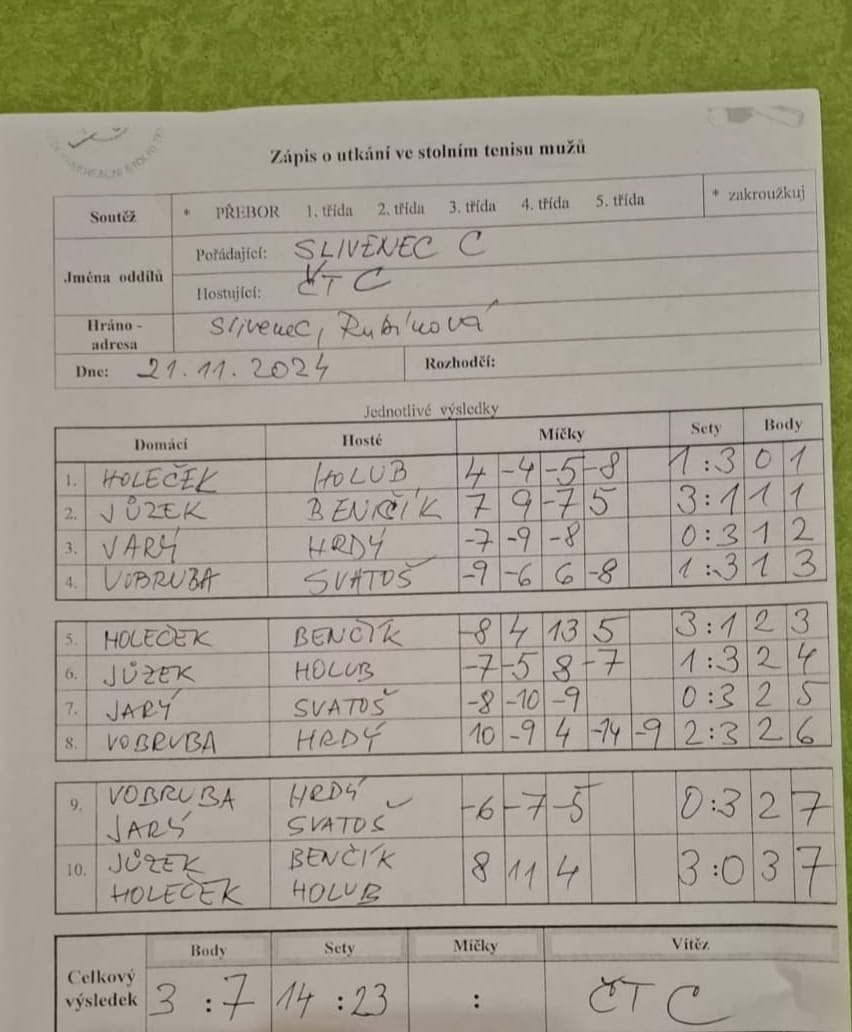 Zápis o utkání ve stolním tenisu mužů
Soutěž * PŘEBOR 1. třída 2. třída 3. třída 4. třída 5. třída * zakroužkuj
Jména oddílů
Pořádající: SLIVENEC C
Hostující: ČT C
Hráno - adresa Slivenec, Rubínová
Dne: 21.11.2024 Rozhodčí:
Jednotlivé výsledky
Domácí Hosté Míčky Sety Body
1. HOLEČEK HOLUB 4 -4 -5 -8 1:3 0 1
2. JŮZEK BENČÍK 7 9 -7 5 3:1 1 1
3. VARÝ HRDÝ -7 -9 -8 0:3 1 2
4. VOBRUBA SVATOŠ -9 -6 6 -8 1:3 1 3
5. HOLEČEK BENČÍK -8 4 13 5 3:1 2 3
6. JŮZEK HOLUB -7 -5 8 -7 1:3 2 4
7. JARÝ SVATOŠ -8 -10 -9 0:3 2 5
8. VOBRUBA HRDÝ 10 -9 4 -14 -9 2:3 2 6
9. VOBRUBA HRDÝ -6 -7 -5 0:3 2 7
JARÝ SVATOŠ
10. JŮZEK BENČÍK 8 11 4 3:0 3 7
HOLEČEK HOLUB
Body Sety Míčky Vítěz
Celkový výsledek 3 : 7 14 : 23 : ČT C